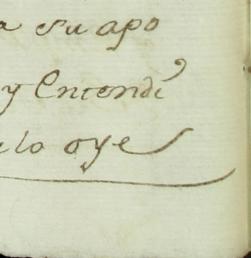 a su apo
y Entendi
elo oye